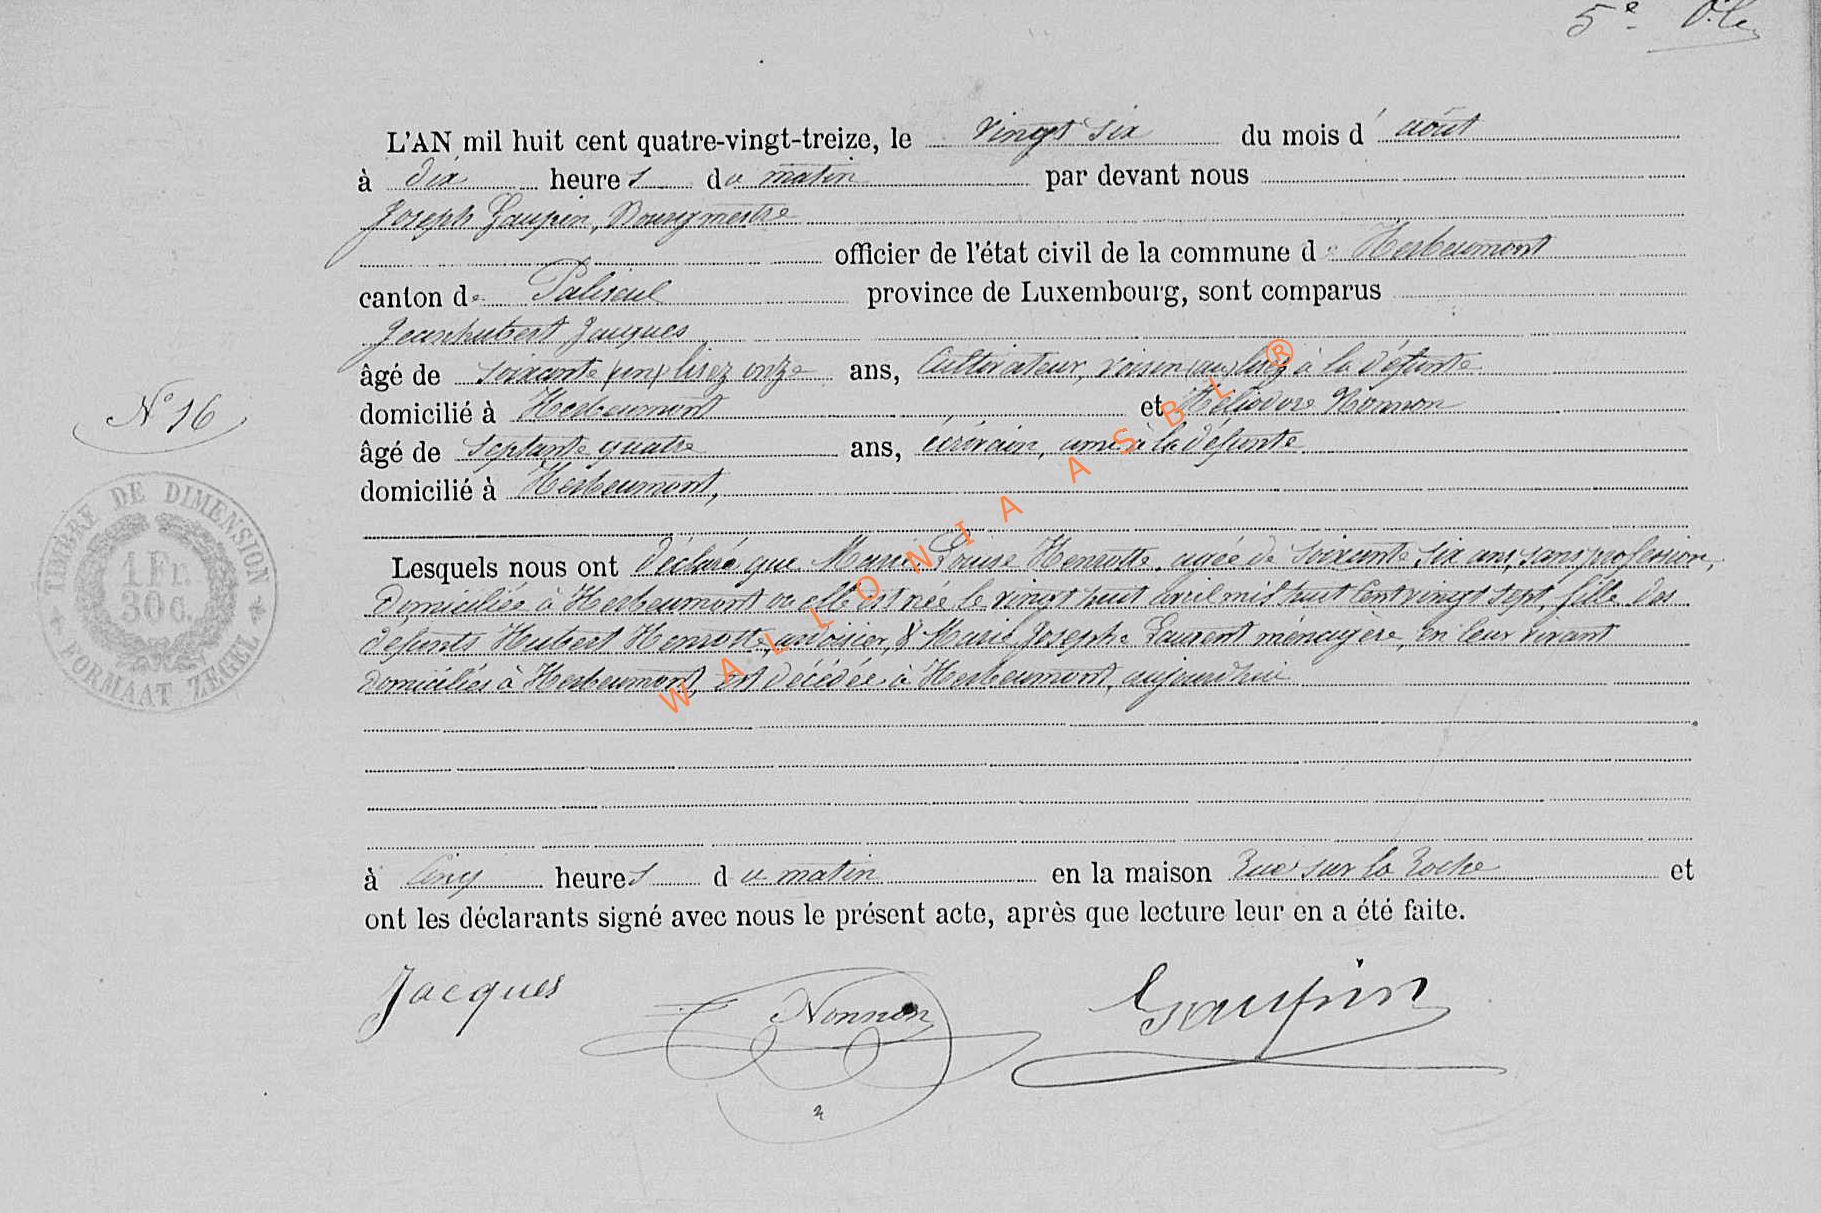 5e
L'AN mil huit cent quatre-vingt-treize, le vingt six du mois d' août
à dix heures du matin par devant nous
Joseph Gaupin, Bourgmestre
officier de l'état civil de la commune de Herbeumont
canton de Paliseul province de Luxembourg, sont comparus
Jeanhubert Jacques
âgé de soixante (un) lisez onze ans, Cultivateur, voisin (au) lisez à la défunte
domicilié à Herbeumont et Héliodore Nonnon
âgé de septante quatre ans, écrivain, ami à la défunte
domicilié à Herbeumont,
N° 16
TIMBRE DE DIMENSION
1 Fr.
30 C.
FORMAAT ZEGEL
Lesquels nous ont déclaré que Marie Louise Henrotte, agée de soixante six ans, sans profession,
domiciliée à Herbeumont où elle est née le vingt huit avril mil huit cent vingt sept, fille des
défunts Hubert Henrotte, ardoisier, & Marie Josephe Laurent ménagère, en leur vivant
domiciliés à Herbeumont est décédée à Herbeumont, aujourdhui
à cinq heures du matin en la maison Rue sur la Roche et
ont les déclarants signé avec nous le présent acte, après que lecture leur en a été faite.
Jacques Nonnon Gaupin
WALLONIA ASBL ®